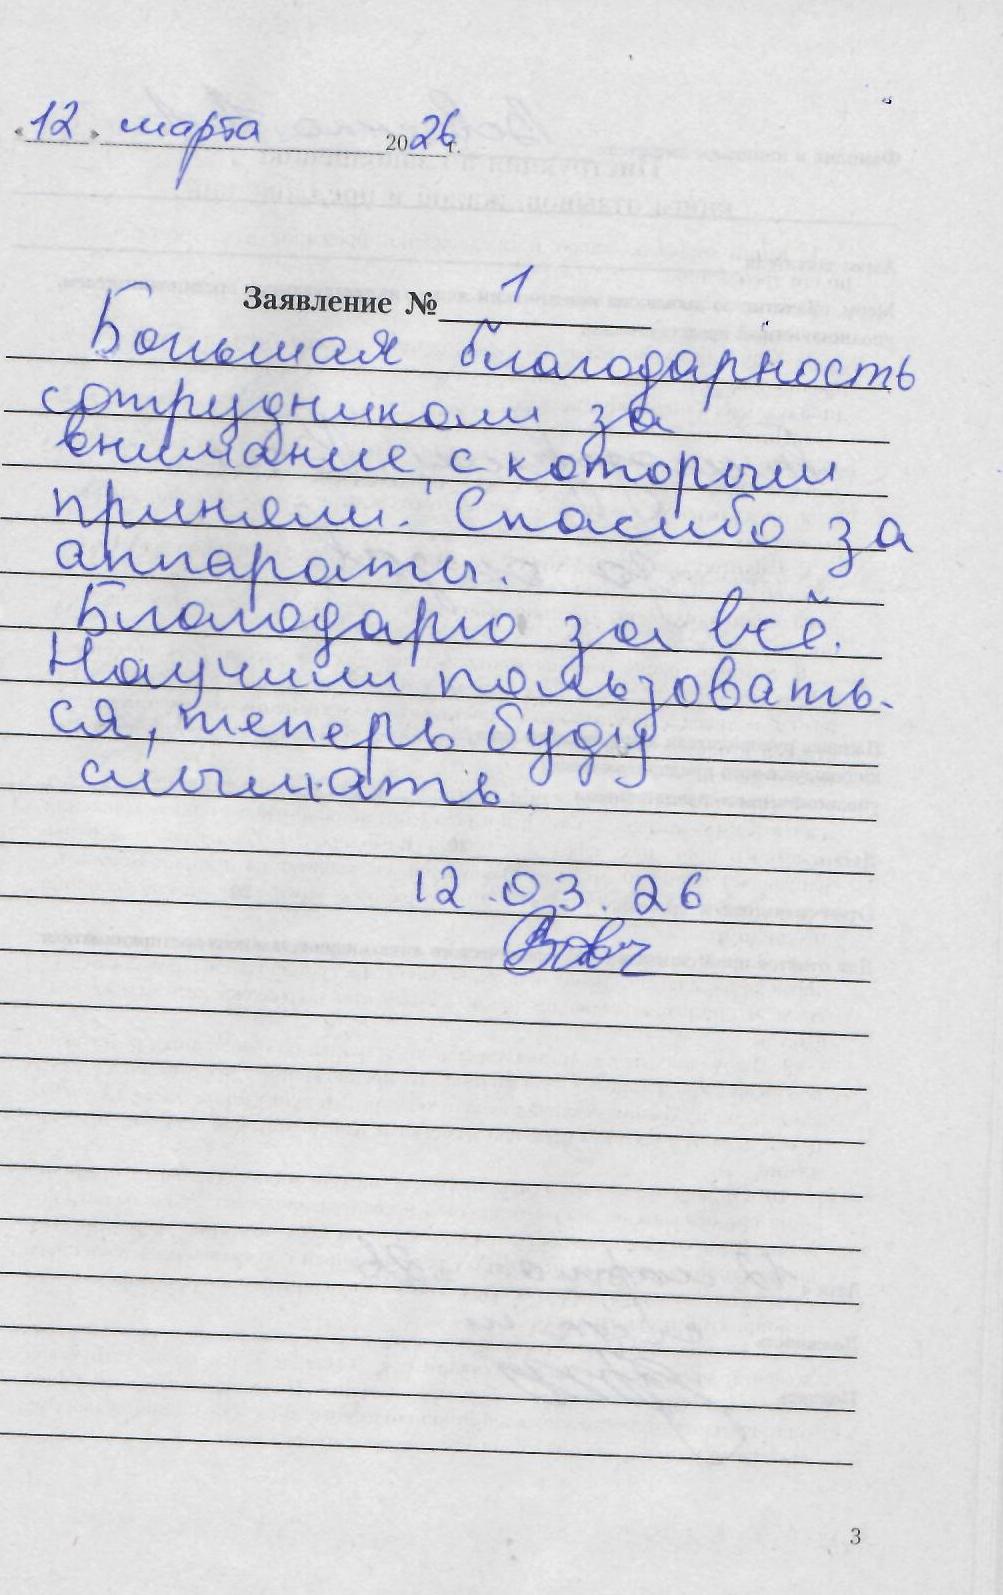 «12» марта 2026 г.
Заявление № 1
Большая благодарность
сотрудникам за
внимание, с которым
приняли. Спасибо за
аппараты.
Благодарю за всё.
Научили пользовать-
ся, теперь буду
слышать.
12.03.26
3